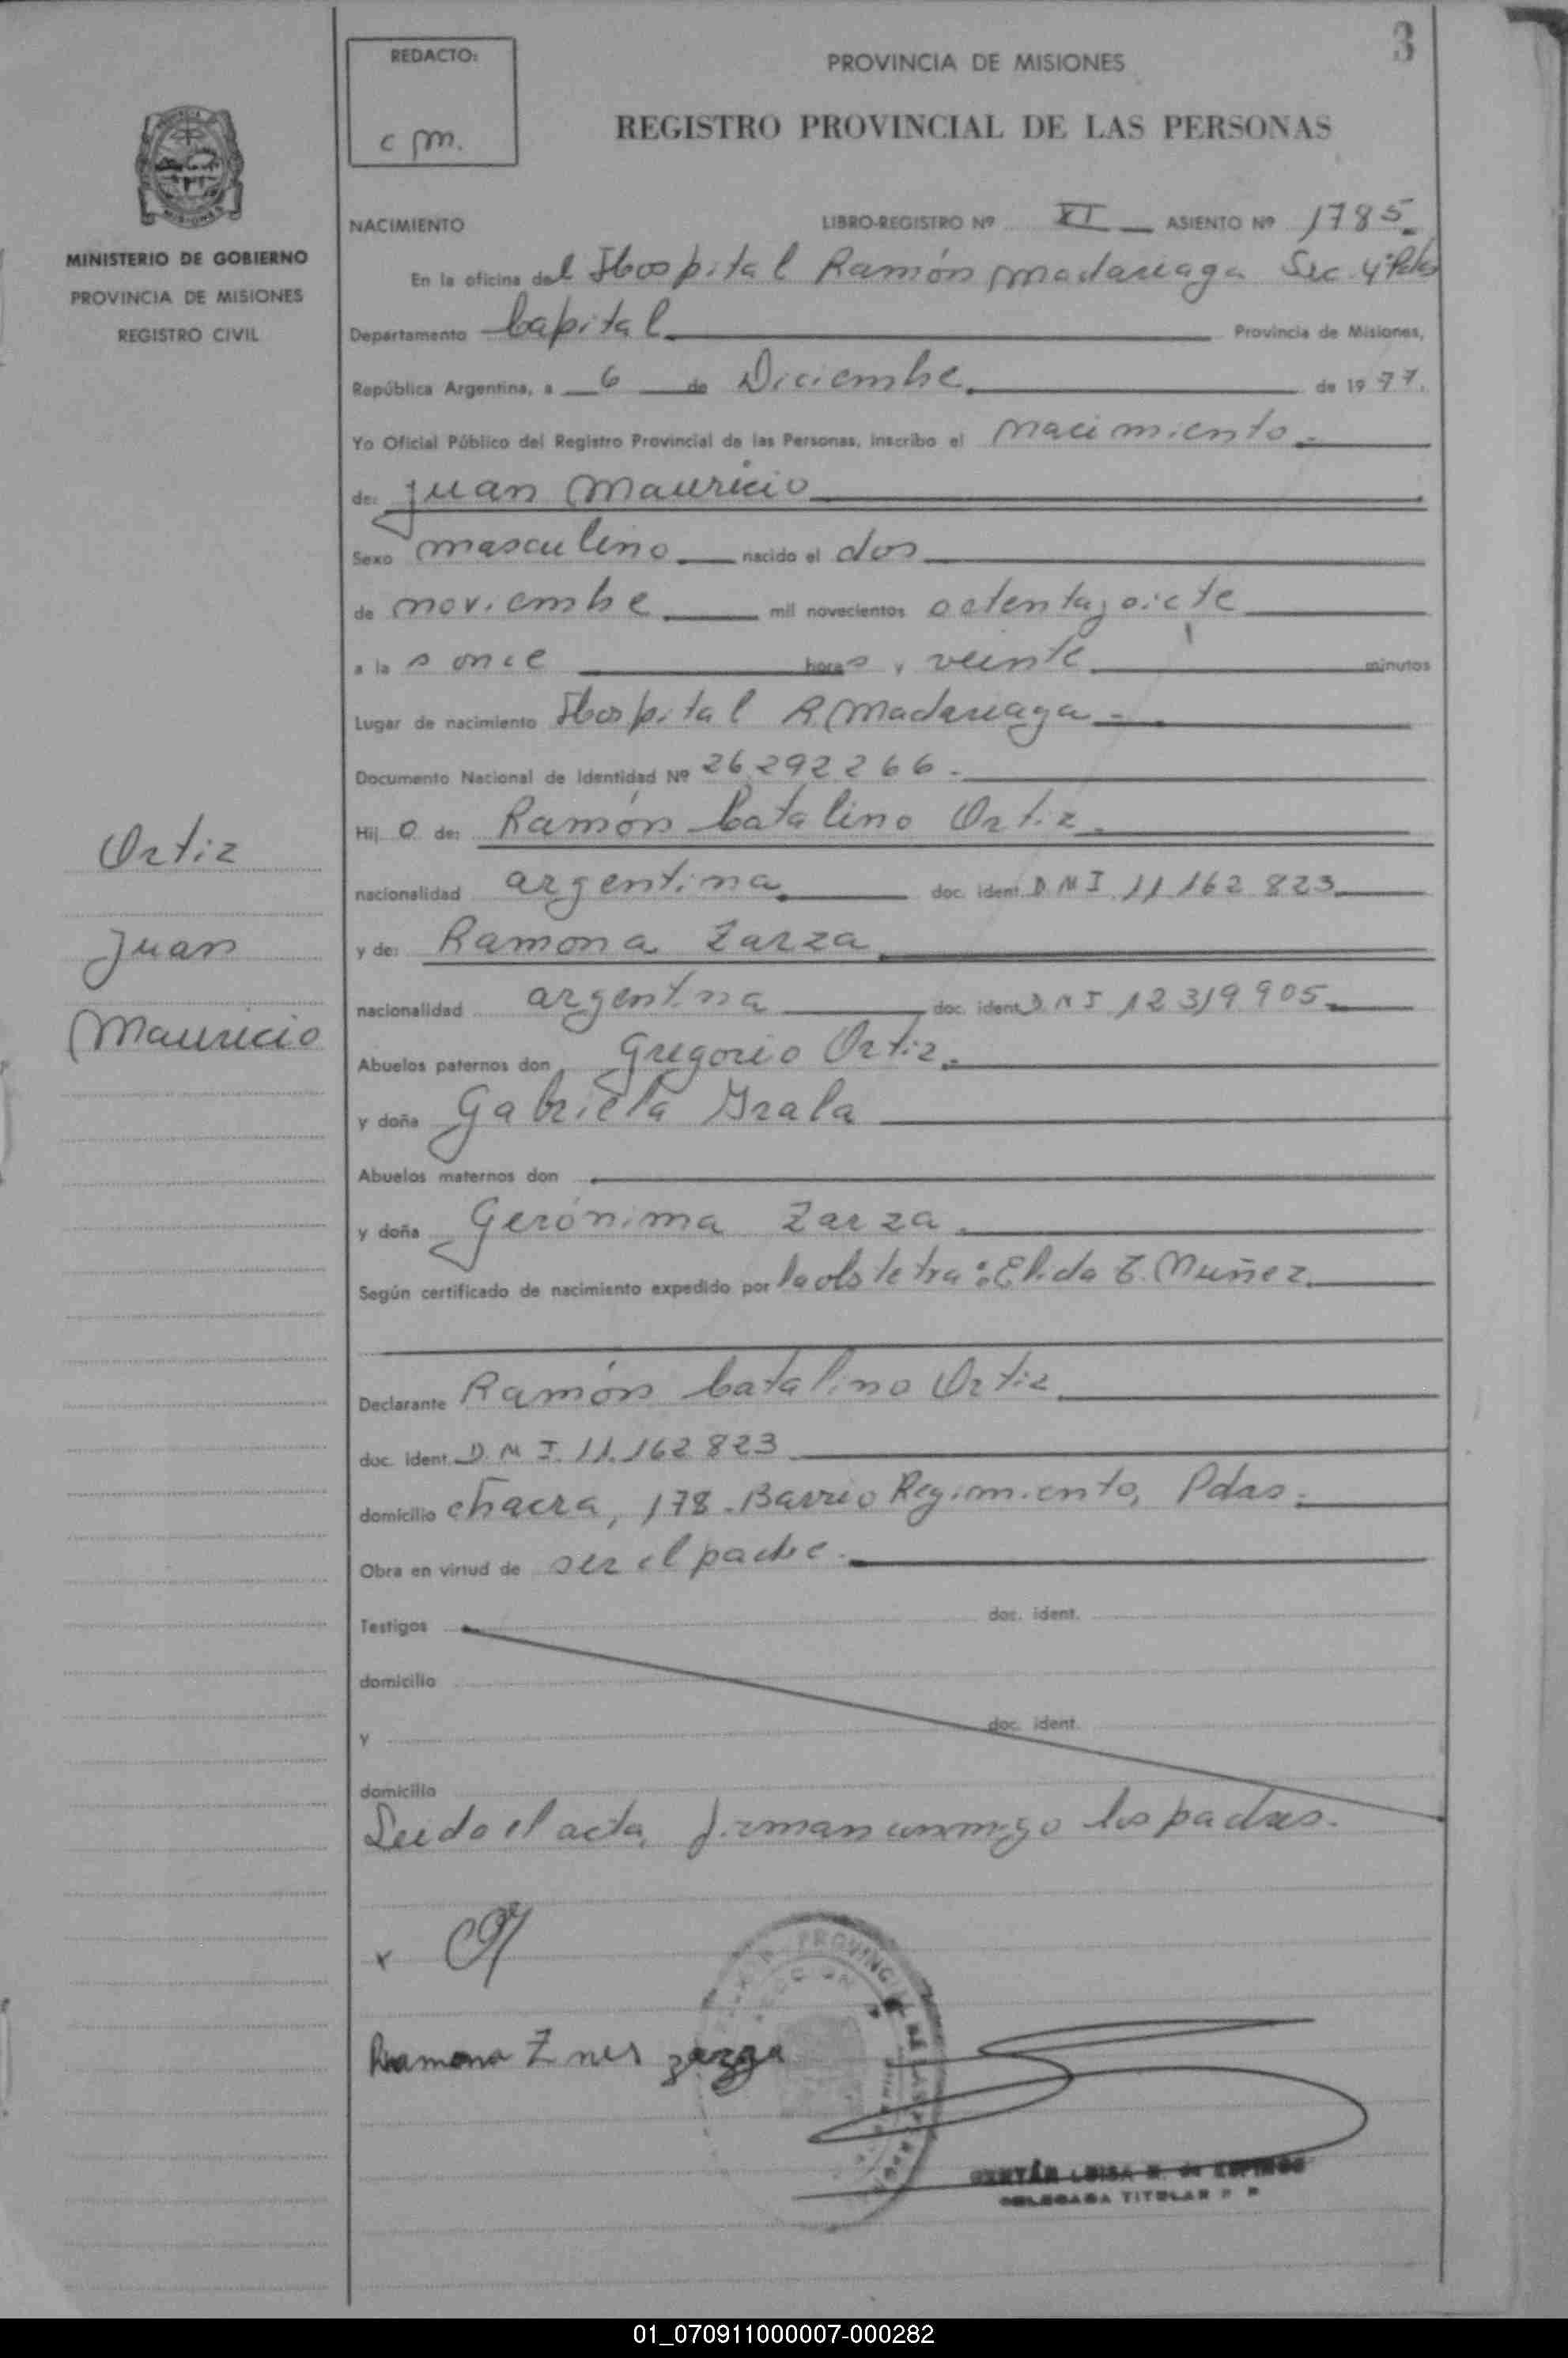 3
REDACTO:
c m.
PROVINCIA DE MISIONES
REGISTRO PROVINCIAL DE LAS PERSONAS
MINISTERIO DE GOBIERNO
PROVINCIA DE MISIONES
REGISTRO CIVIL
NACIMIENTO LIBRO-REGISTRO Nº XI ASIENTO Nº 1785
En la oficina del Hospital Ramón Madariaga Sec 4ª Pdas
Departamento Capital Provincia de Misiones,
República Argentina, a 6 de Diciembre de 1977.
Yo Oficial Público del Registro Provincial de las Personas, inscribo el nacimiento
de: Juan Mauricio
Sexo masculino nacido el dos
de noviembre mil novecientos setenta y siete
a las once horas y veinte minutos
Lugar de nacimiento Hospital R Madariaga
Documento Nacional de Identidad Nº 26.292266
Hijo de: Ramón Catalino Ortiz
nacionalidad argentina doc. ident. DNI 11 162 823
y de: Ramona Zarza
nacionalidad argentina doc. ident. DNI 12319905
Abuelos paternos don Gregorio Ortiz
y doña Gabriela Irala
Abuelos maternos don
y doña Gerónima Zarza
Según certificado de nacimiento expedido por la obstetra: Elida E. Muñez
Declarante Ramón Catalino Ortiz
doc. ident. DNI. 11.162 823
domicilio chacra, 178 - Barrio Regimiento, Pdas.
Obra en virtud de ser el padre.
Testigos doc. ident.
domicilio
y doc. ident.
domicilio
Leido el acta, firman conmigo los padres.
Ortiz
Juan
Mauricio
x
Ramona Ines zarza
PROVINCIAL DE LAS
LUISA
DELEGADA TITULAR
01_070911000007-000282